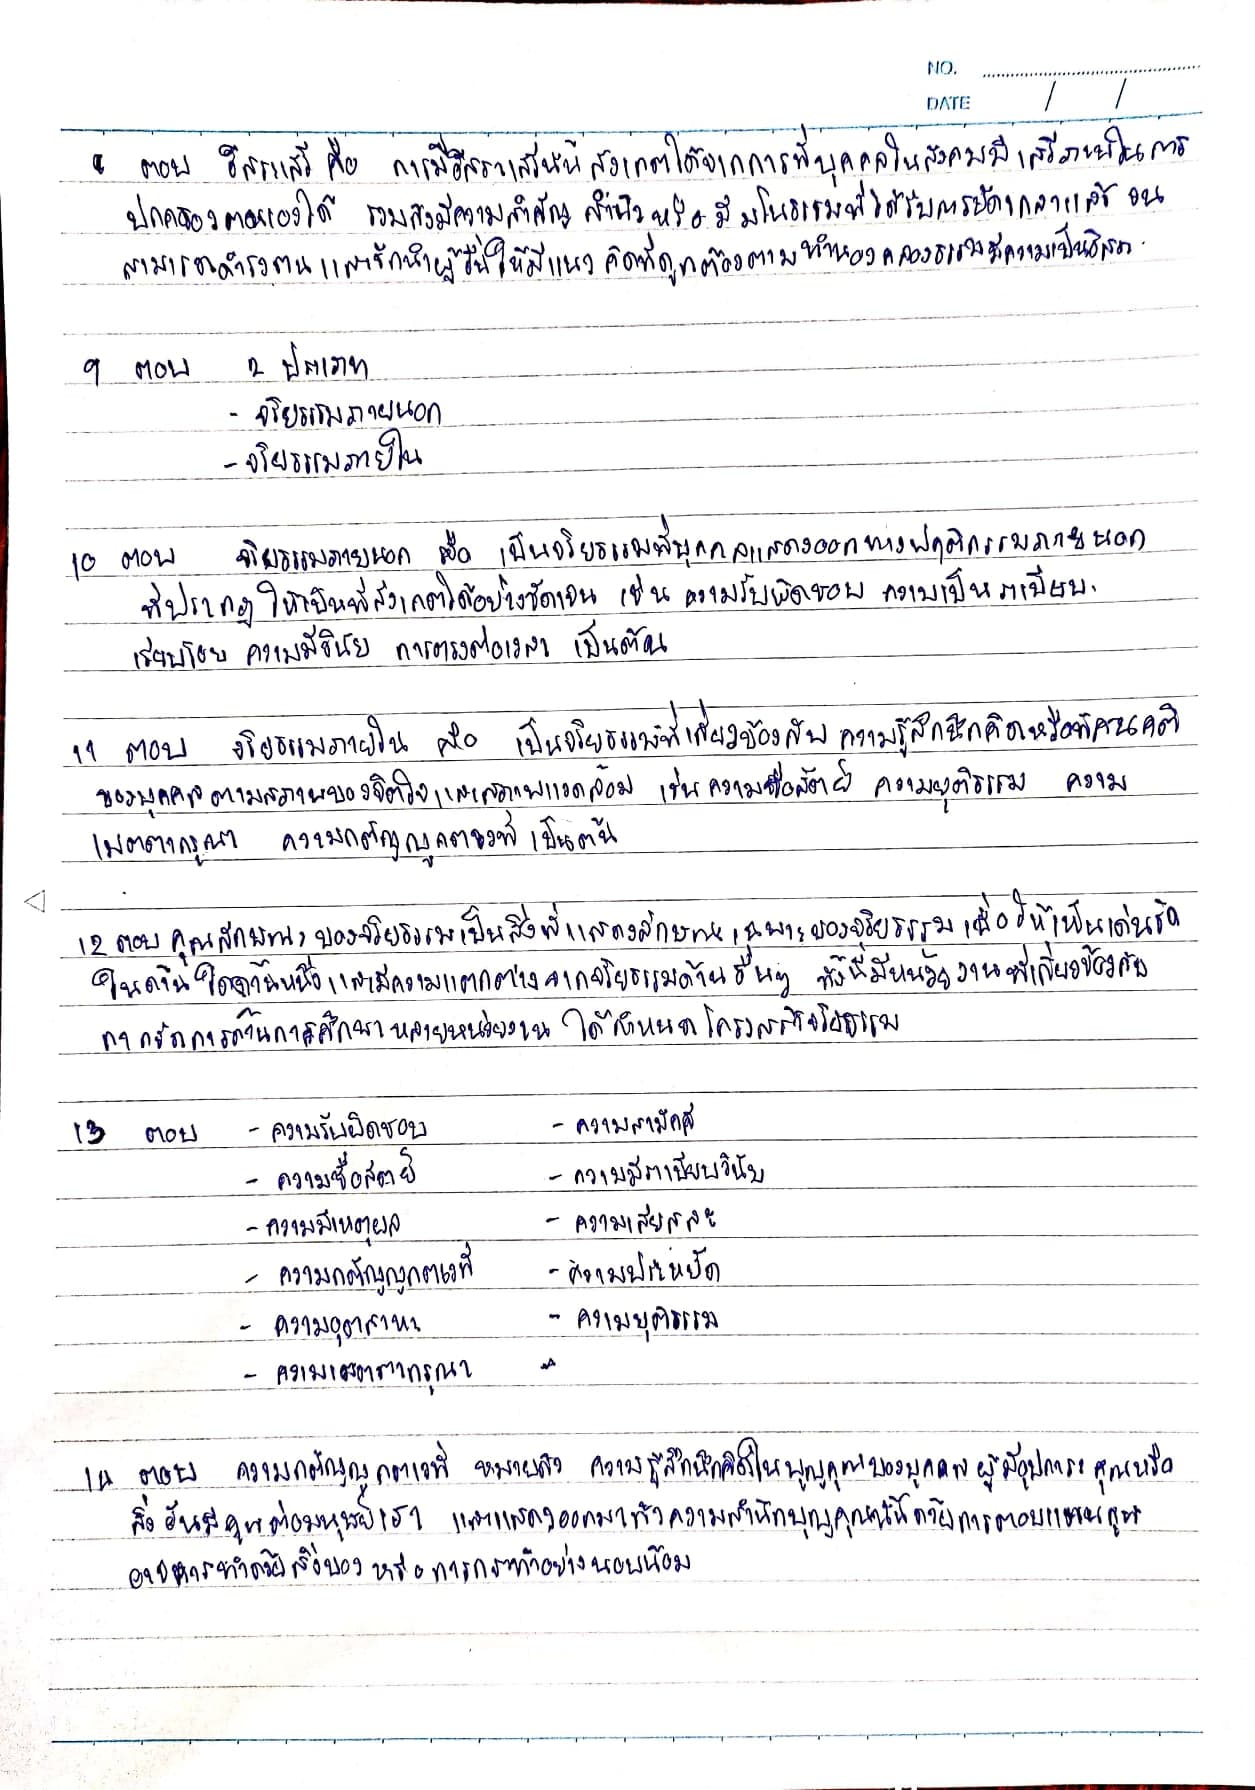 NO.
DATE / /
8 ตอบ อิสระเสรี คือ การมีอิสระเสรีนั้น สังเกตได้จากการที่บุคคลในสังคมมีเสรีภาพในการ
ปกครองตนเองได้ รวมถึงมีความสำคัญ สำนึก หรือ มี มโนธรรมที่ได้รับการขัดเกลาแล้ว จน
สามารถดำรงตน และชักนำผู้อื่น ให้มีแนวคิดที่ถูกต้องตามทำนองคลองธรรมมีความเป็นอิสระ
9 ตอบ 2 ประเภท
- จริยธรรมภายนอก
- จริยธรรมภายใน
10 ตอบ จริยธรรมภายนอก คือ เป็นจริยธรรมที่บุคคลแสดงออกทางพฤติกรรมภายนอก
ที่ปรากฏ ให้เห็นที่สังเกตได้อย่างชัดเจน เช่น ความรับผิดชอบ ความเป็นระเบียบ.
เรียบร้อย ความมีวินัย การตรงต่อเวลา เป็นต้น
11 ตอบ จริยธรรมภายใน คือ เป็นจริยธรรมที่เกี่ยวข้องกับ ความรู้สึกนึกคิดหรือทัศนคติ
ของบุคคลตามสภาพของจิตใจและสภาพแวดล้อม เช่นความซื่อสัตย์ ความยุติธรรม ความ
เมตตากรุณา ความกตัญญูกตเวที เป็นต้น
12 ตอบ คุณลักษณะ ของจริยธรรมเป็นสิ่งที่แสดงลักษณะเฉพาะของจริยธรรม เพื่อให้เห็นเด่นชัด
ในด้านใดด้านหนึ่ง และมีความแตกต่างจากจริยธรรมด้านอื่นๆ ทั้งนี้มีหน่วยงานที่เกี่ยวข้องกับ
การจัดการด้านการศึกษาหลายหน่วยงาน ได้กำหนดโครงสร้างจริยธรรม
13 ตอบ - ความรับผิดชอบ - ความสามัคคี
- ความซื่อสัตย์ - ความมีระเบียบวินัย
- ความมีเหตุผล - ความเสียสละ
- ความกตัญญูกตเวที - ความประหยัด
- ความอุตสาหะ - ความยุติธรรม
- ความเมตตากรุณา
14 ตอบ ความกตัญญูกตเวที หมายถึง ความรู้สึกนึกคิดในบุญคุณของบุคคล ผู้มีอุปการะคุณหรือ
สิ่งอันมีคุณต่อมนุษย์เรา และแสดงออกมา ความสำนึกบุญคุณนั้นด้วยการตอบแทนคุณ
อาจ ทำด้วยสิ่งของ หรือ การกระทำอย่างนอบน้อม